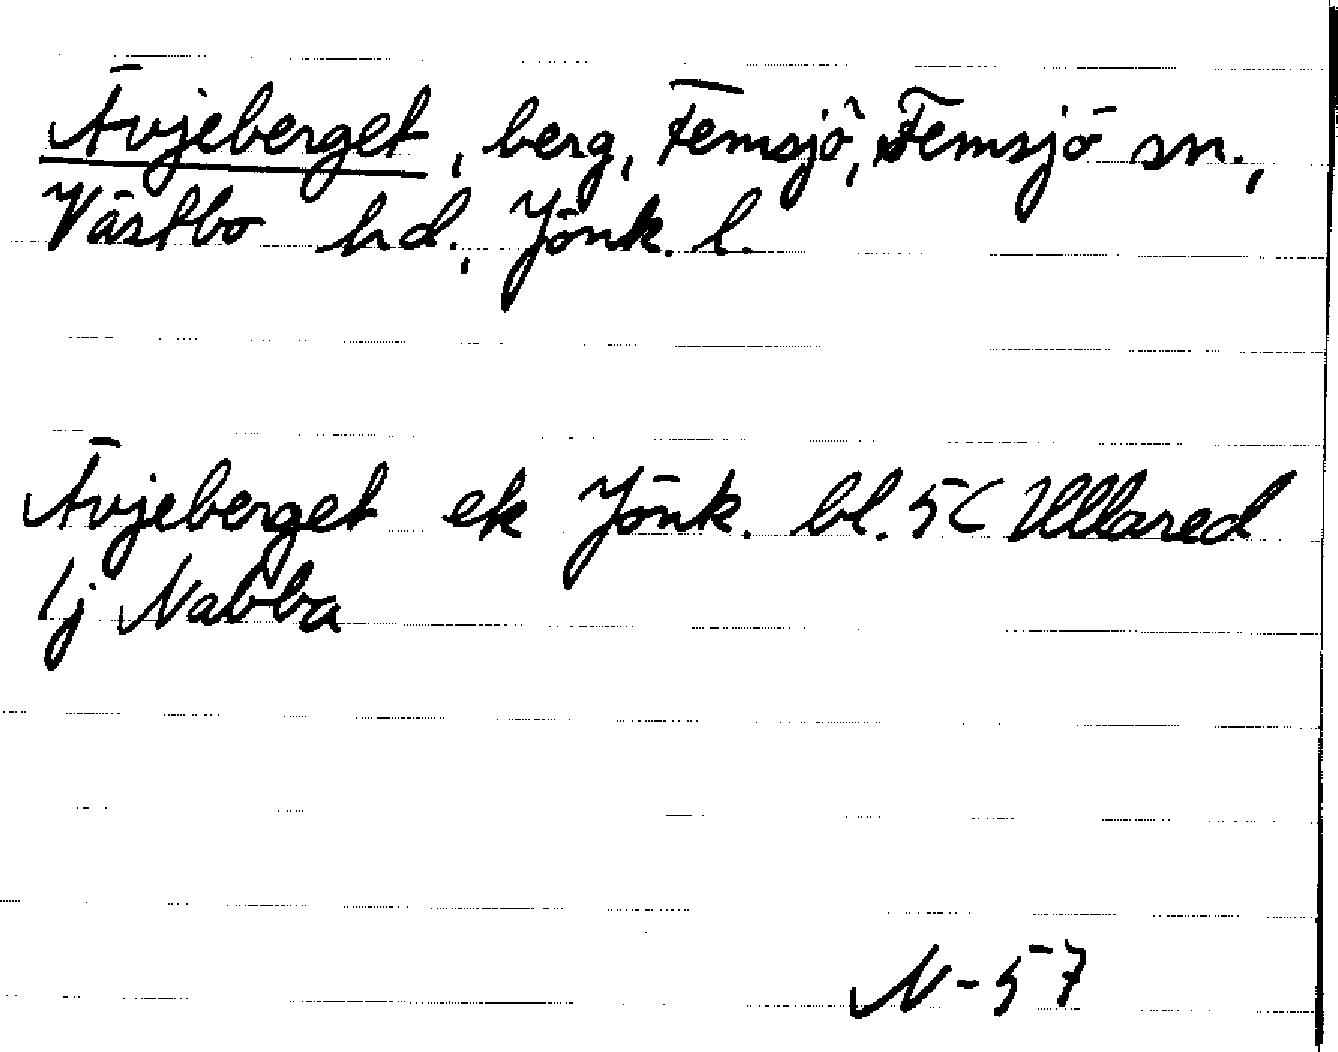 Ävjeberget, berg, Femsjö, Femsjö sn.,
Västbo hd., Jönk. l.
Ävjeberget ek Jönk. bl. 5C Ullared
1j Nabba
N-57